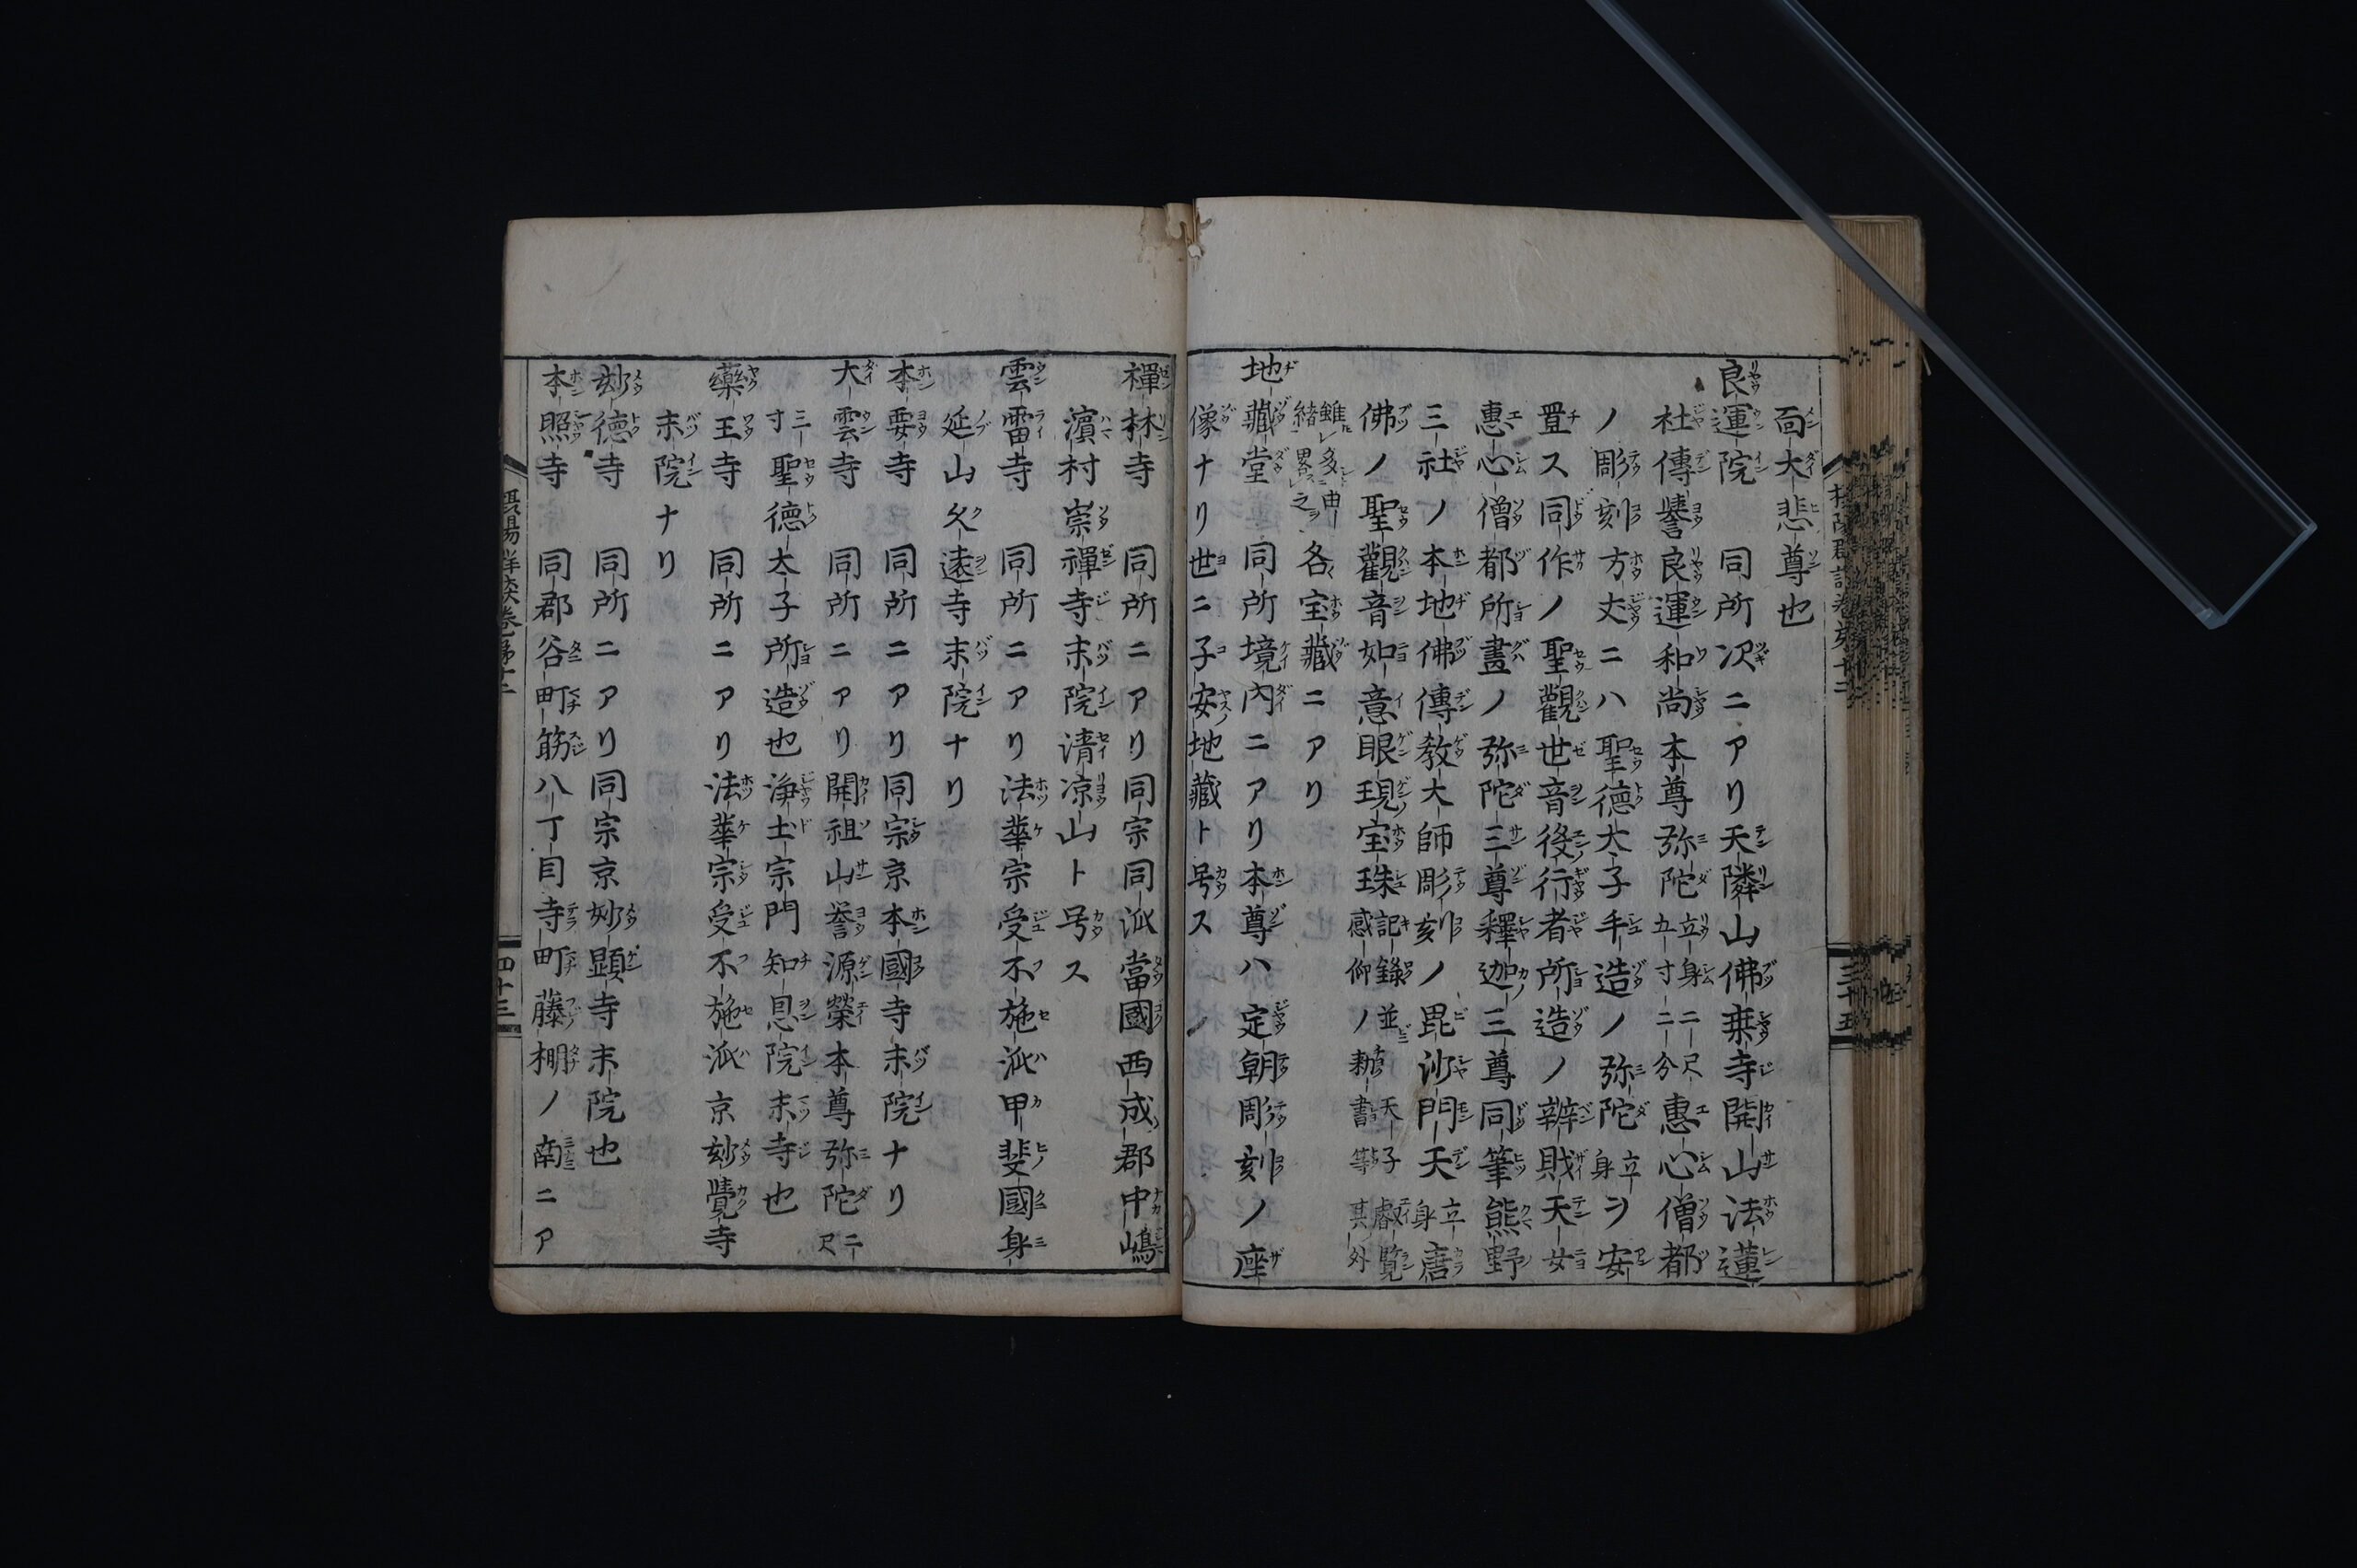 面大悲尊也
良運院　同所次ニアリ天隣山佛乗寺開山法蓮
社傳譽良運和尚本尊弥陀立身二尺五寸二分惠心僧都
ノ彫刻方丈ニハ聖德太子手造ノ弥陀立身ヲ安
置ス同作ノ聖觀世音役行者所造ノ辨財天女
惠心僧都所畫ノ弥陀三尊釋迦三尊同筆熊野
三社ノ本地佛傳教大師彫刻ノ毘沙門天立身唐
佛ノ聖觀音如意眼現宝珠記錄並天子叡覧感仰ノ書等其外
雖多由緒畧之各宝藏ニアリ
地藏堂　同所境内ニアリ本尊ハ定朝彫刻ノ座
像ナリ世ニ子安地藏ト号ス
禪林寺　同所ニアリ同宗同派當國西成郡中嶋
濵村崇禪寺末院清凉山ト号ス
雲雷寺　同所ニアリ法華宗受不施派甲斐國身
延山久遠寺末院ナリ
本要寺　同所ニアリ同宗京本國寺末院ナリ
大雲寺　同所ニアリ開祖山誉源榮本尊弥陀二尺
三寸聖德太子所造也浄土宗門知恩院末寺也
藥王寺　同所ニアリ法華宗受不施派京妙覺寺
末院ナリ
妙德寺　同所ニアリ同宗京妙顕寺末院也
本照寺　同郡谷町筋八丁目寺町藤棚ノ南ニア
四十三